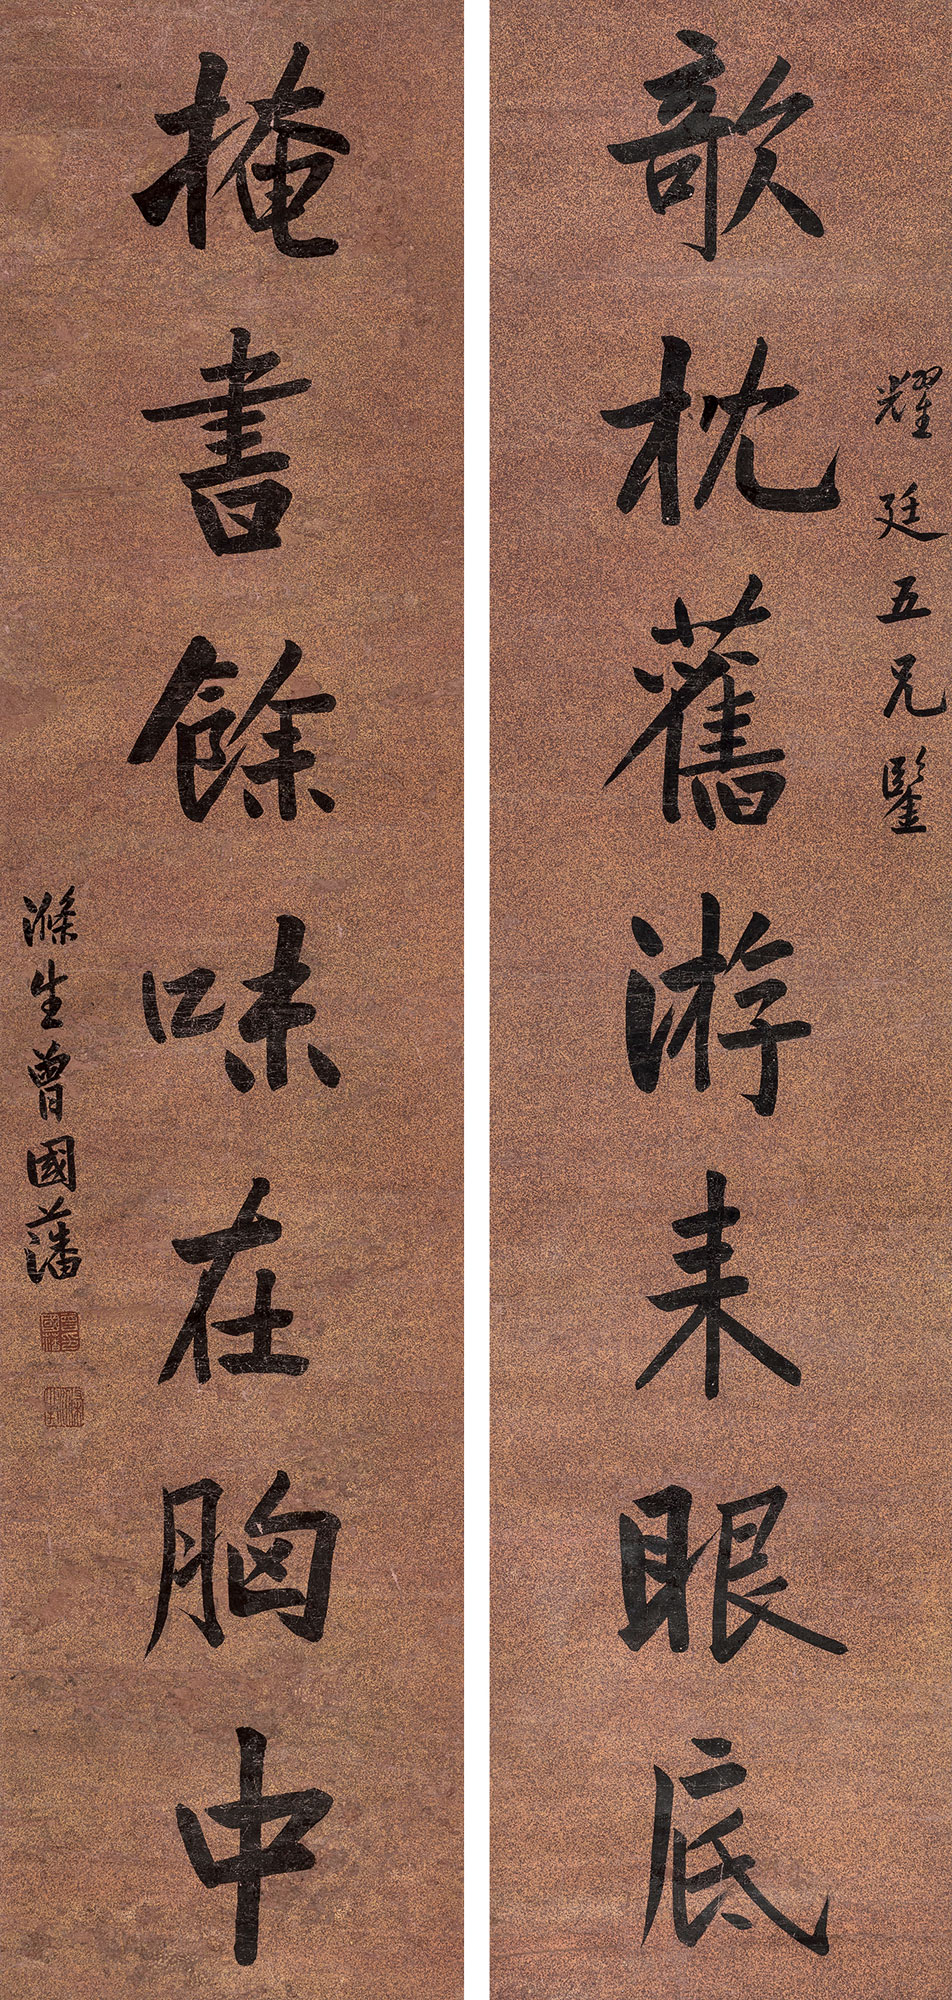 耀廷五兄鑒
欹枕舊游来眼底
掩書餘味在胸中
滌生曾國藩